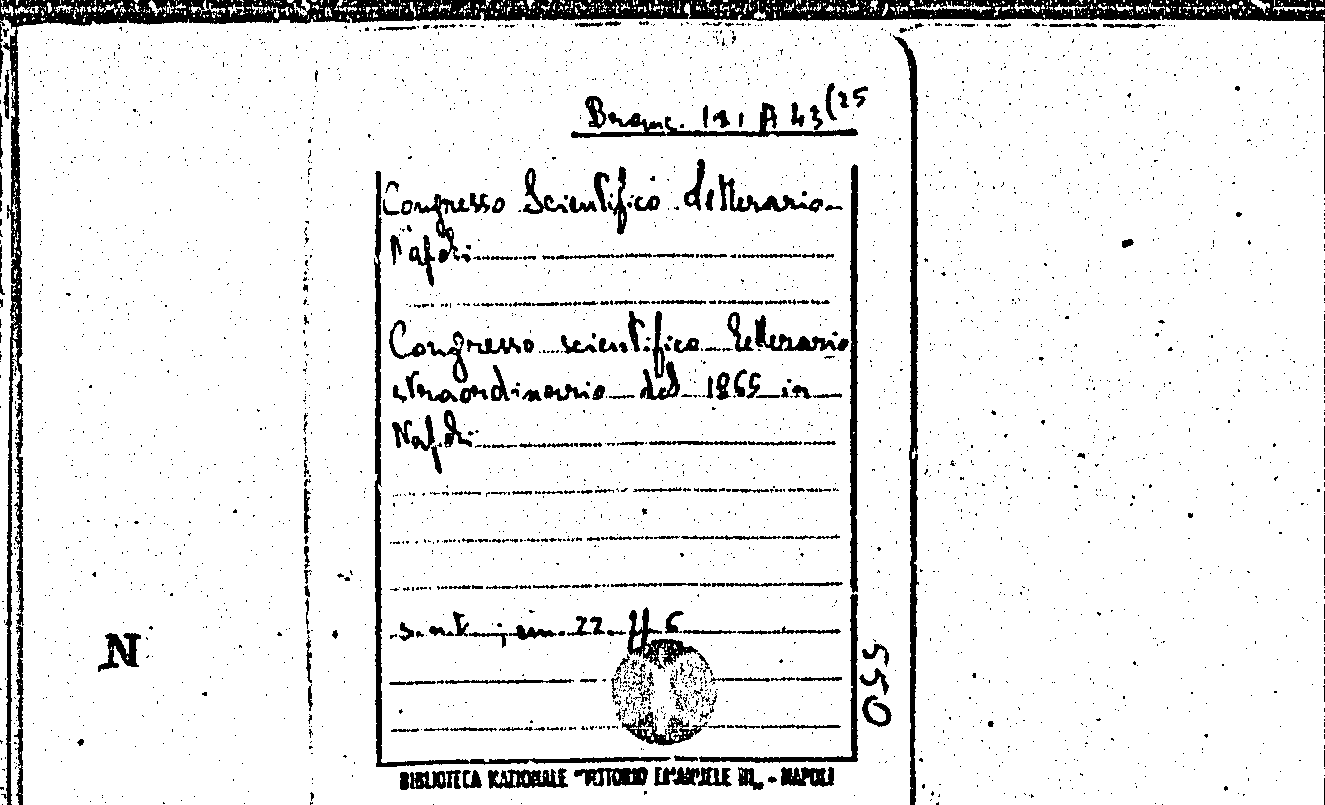 Branc. 121 A 43(25
Congresso Scientifico Letterario-
Napoli
Congresso scientifico letterario
straordinario del 1865 in
Napoli
s.n.t. ; cm 22 ff 6
550
N
BIBLIOTECA NAZIONALE "VITTORIO EMANUELE III" - NAPOLI